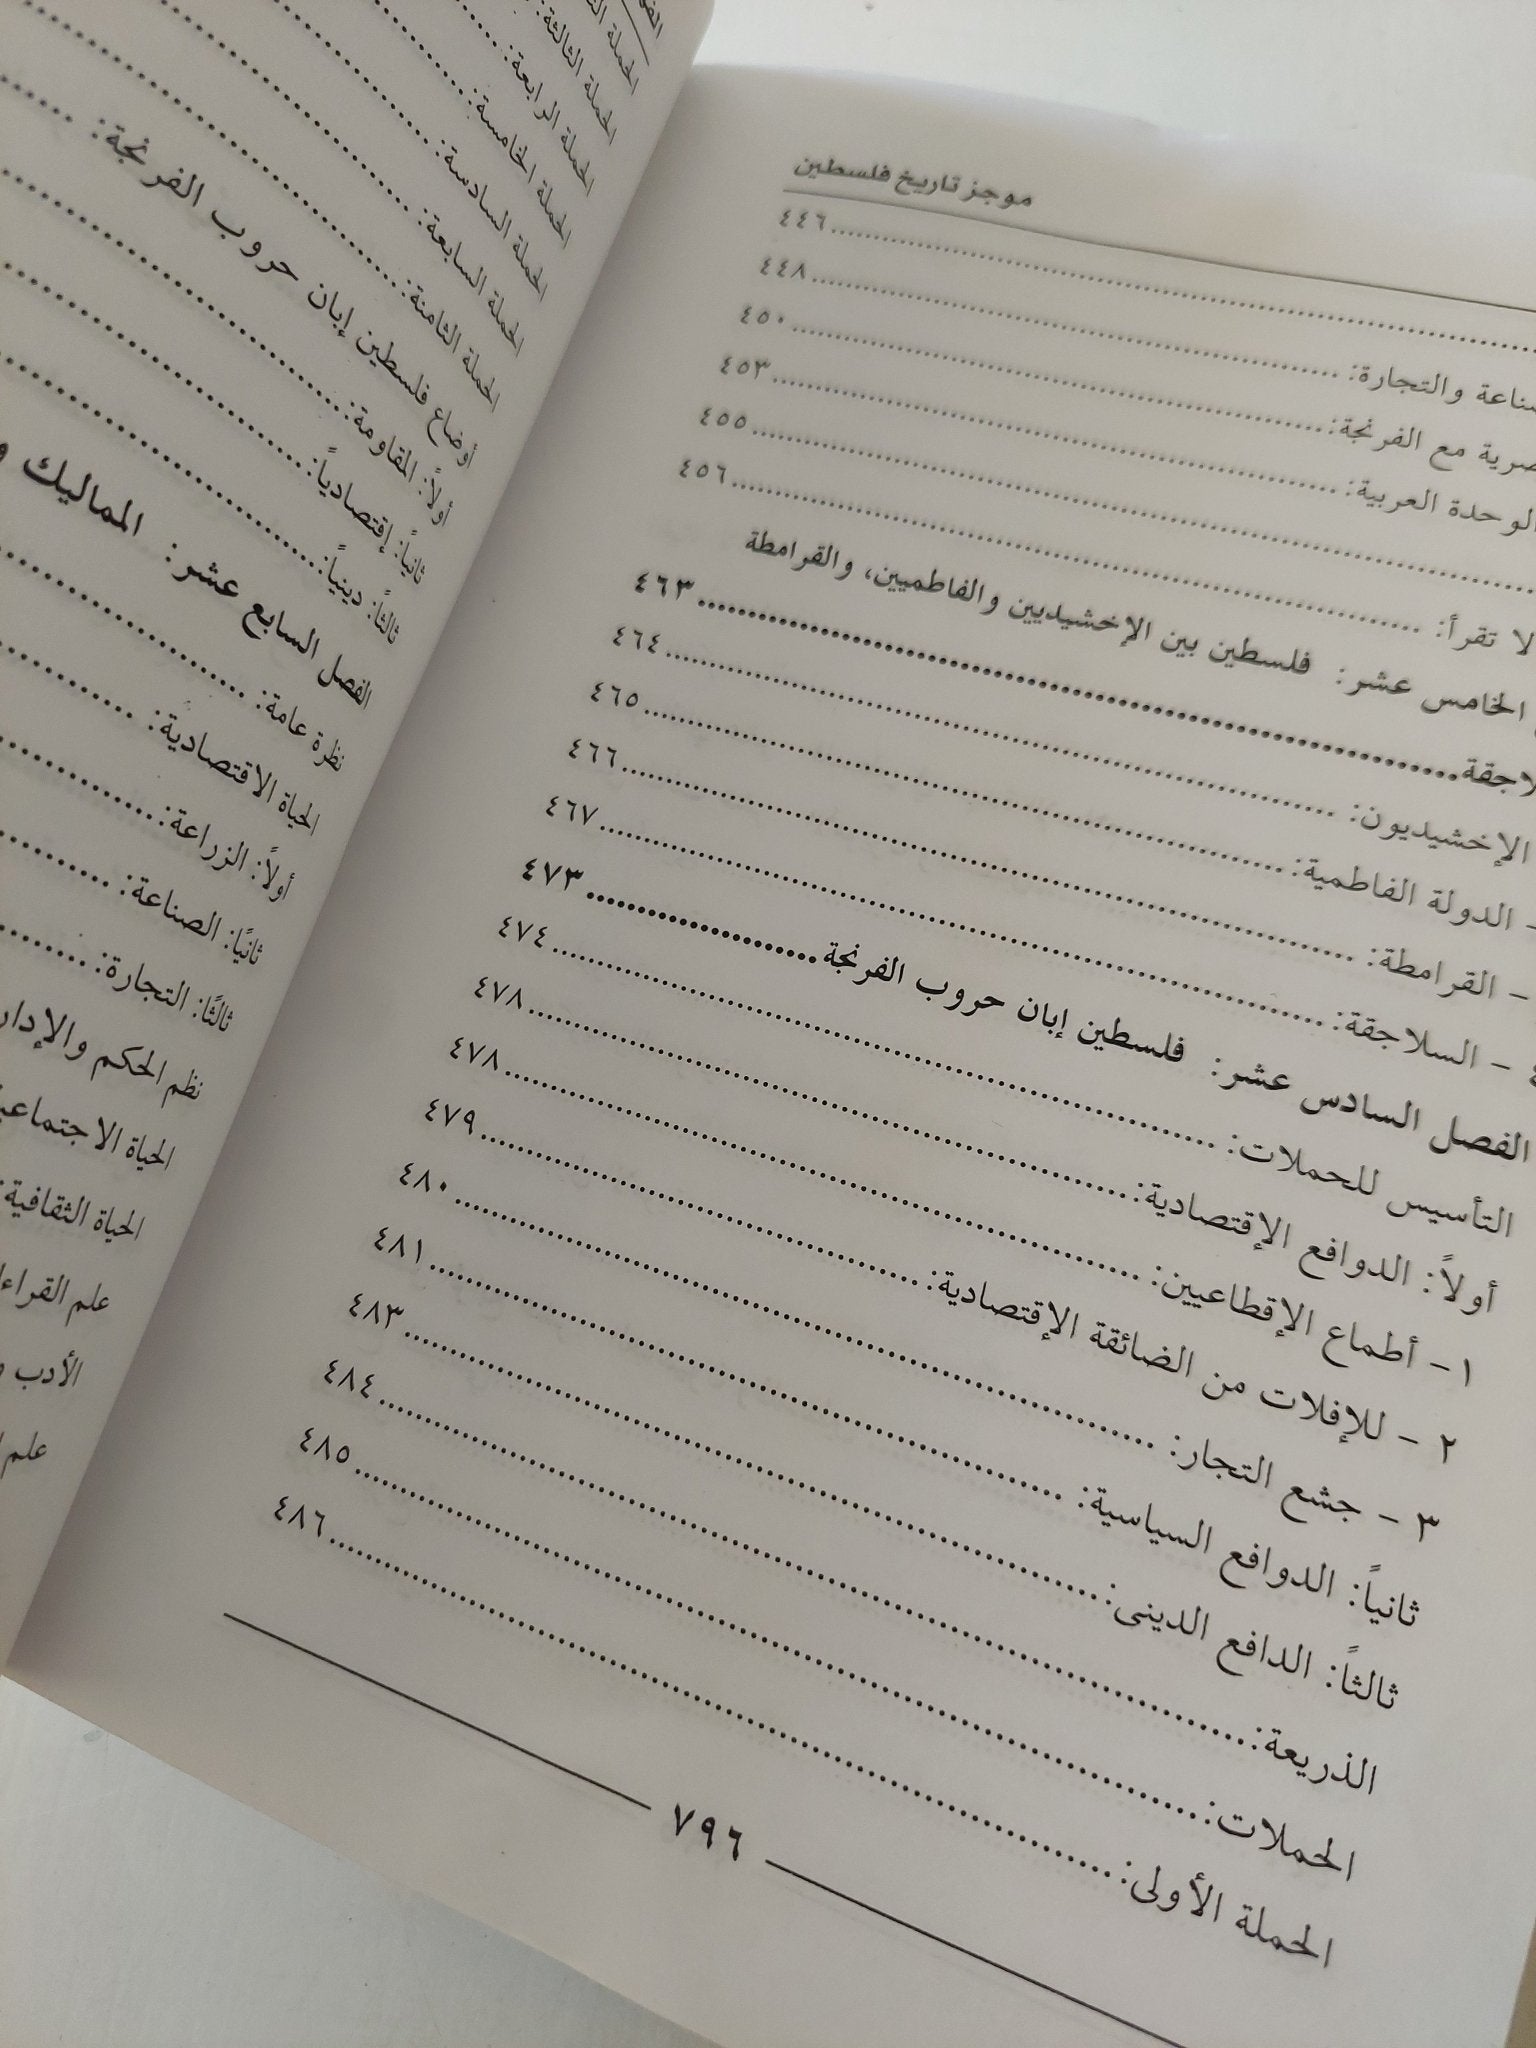 موجز تاريخ فلسطين
..........٤٤٦
والتجارة: ..........٤٤٨
مع الفرنجة: ..........٤٥٠
الوحدة العربية: ..........٤٥٣
..........٤٥٥
لا تقرأ: ..........٤٥٦
الخامس عشر: فلسطين بين الإخشيديين والفاطميين، والقرامطة
..........٤٦٣
الإخشيديون: ..........٤٦٤
- الدولة الفاطمية: ..........٤٦٥
- القرامطة: ..........٤٦٦
- السلاجقة: ..........٤٦٧
الفصل السادس عشر: فلسطين إبان حروب الفرنجة ..........٤٧٣
التأسيس للحملات: ..........٤٧٤
أولاً: الدوافع الإقتصادية: ..........٤٧٨
١- أطماع الإقطاعيين: ..........٤٧٨
٢ - للإفلات من الضائقة الإقتصادية: ..........٤٧٩
٣ - جشع التجار: ..........٤٨٠
ثانياً: الدوافع السياسية: ..........٤٨١
ثالثاً: الدافع الدينى: ..........٤٨٣
الذريعة: ..........٤٨٤
الحملات: ..........٤٨٥
الحملة الأولى: ..........٤٨٦
٧٩٦
الحملة
الحملة الثالثة:
الحملة الرابعة:
الحملة الخامسة:
الحملة السادسة:
الحملة السابعة:
الحملة الثامنة:
أوضاع فلسطين إبان حروب الفرنجة:
أولاً: المقاومة:
ثانياً: إقتصادياً:
ثالثاً: دينياً:
الفصل السابع عشر: المماليك
نظرة عامة:
الحياة الاقتصادية:
أولاً: الزراعة:
ثانيًا: الصناعة:
ثالثًا: التجارة:
نظم الحكم
الحياة
الحياة الثقافية:
علم
الأدب
علم